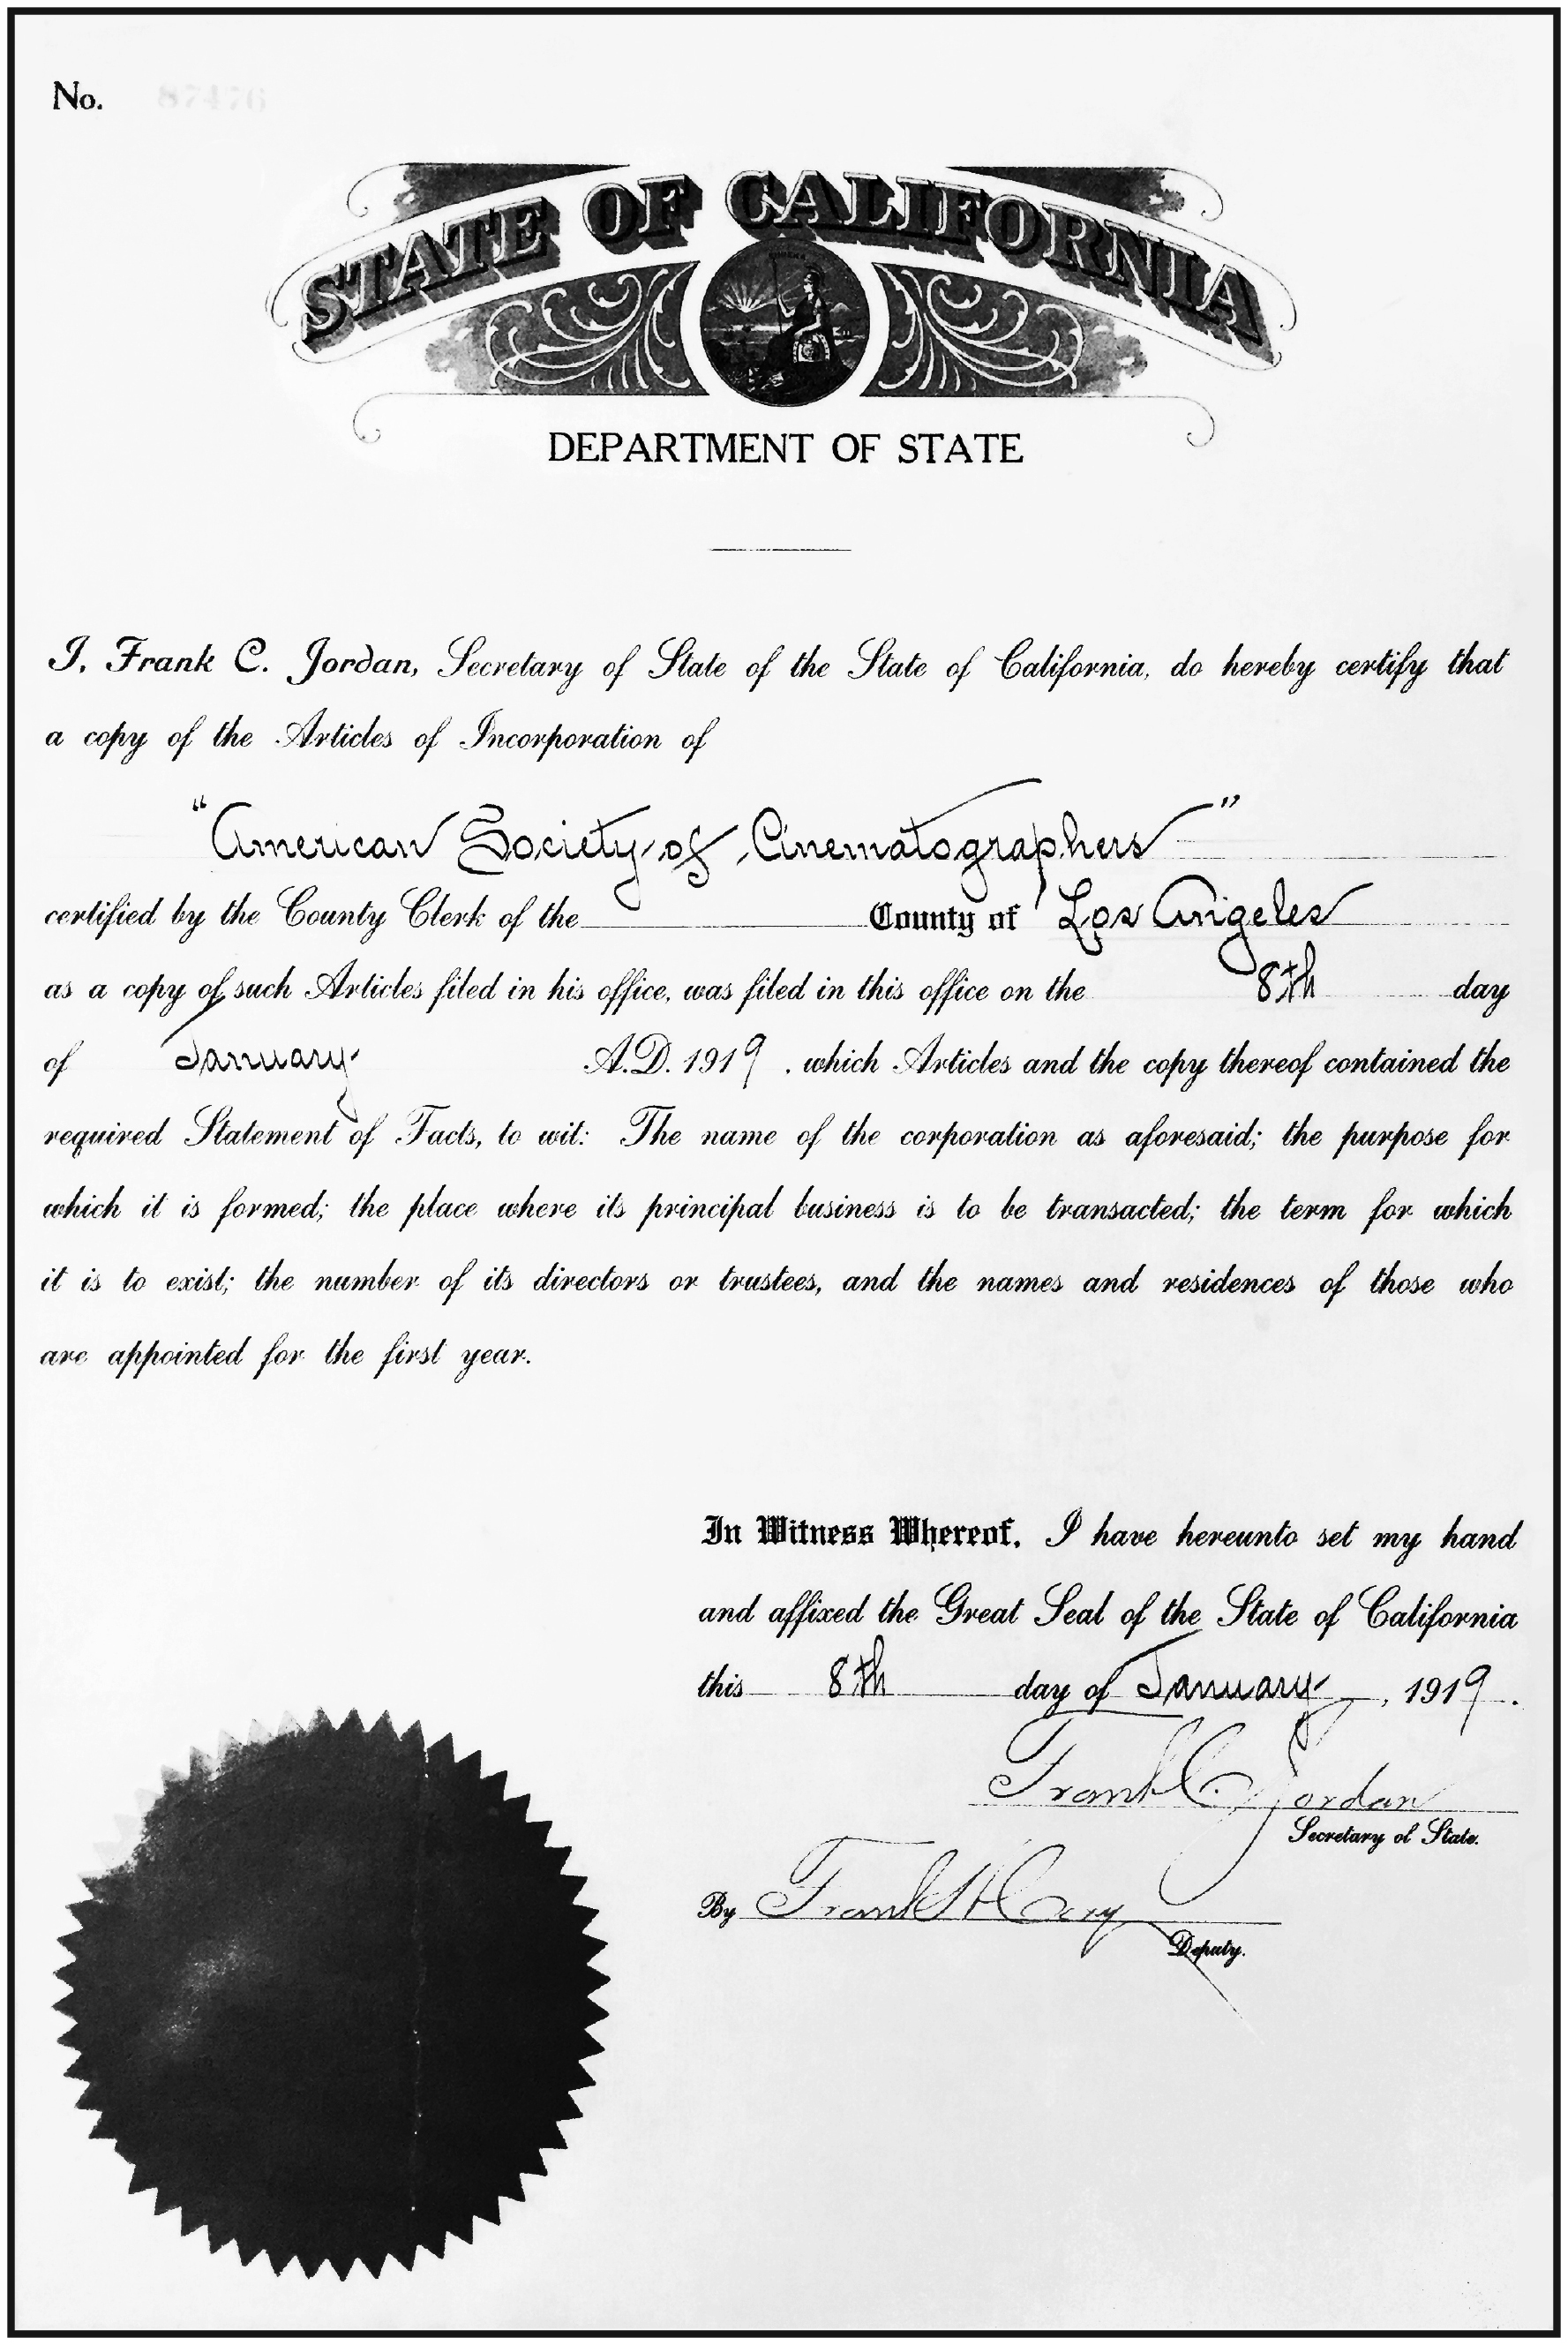 No. 87476
STATE OF CALIFORNIA
EUREKA
DEPARTMENT OF STATE
I, Frank C. Jordan, Secretary of State of the State of California, do hereby certify that
a copy of the Articles of Incorporation of
"American Society of Cinematographers"
certified by the County Clerk of the County of Los Angeles
as a copy of such Articles filed in his office, was filed in this office on the 8th day
of January A.D. 1919, which Articles and the copy thereof contained the
required Statement of Facts, to wit: The name of the corporation as aforesaid; the purpose for
which it is formed; the place where its principal business is to be transacted; the term for which
it is to exist; the number of its directors or trustees, and the names and residences of those who
are appointed for the first year.
In Witness Whereof, I have hereunto set my hand
and affixed the Great Seal of the State of California
this 8th day of January, 1919.
Frank C. Jordan
Secretary of State.
By Frank H Cory
Deputy.